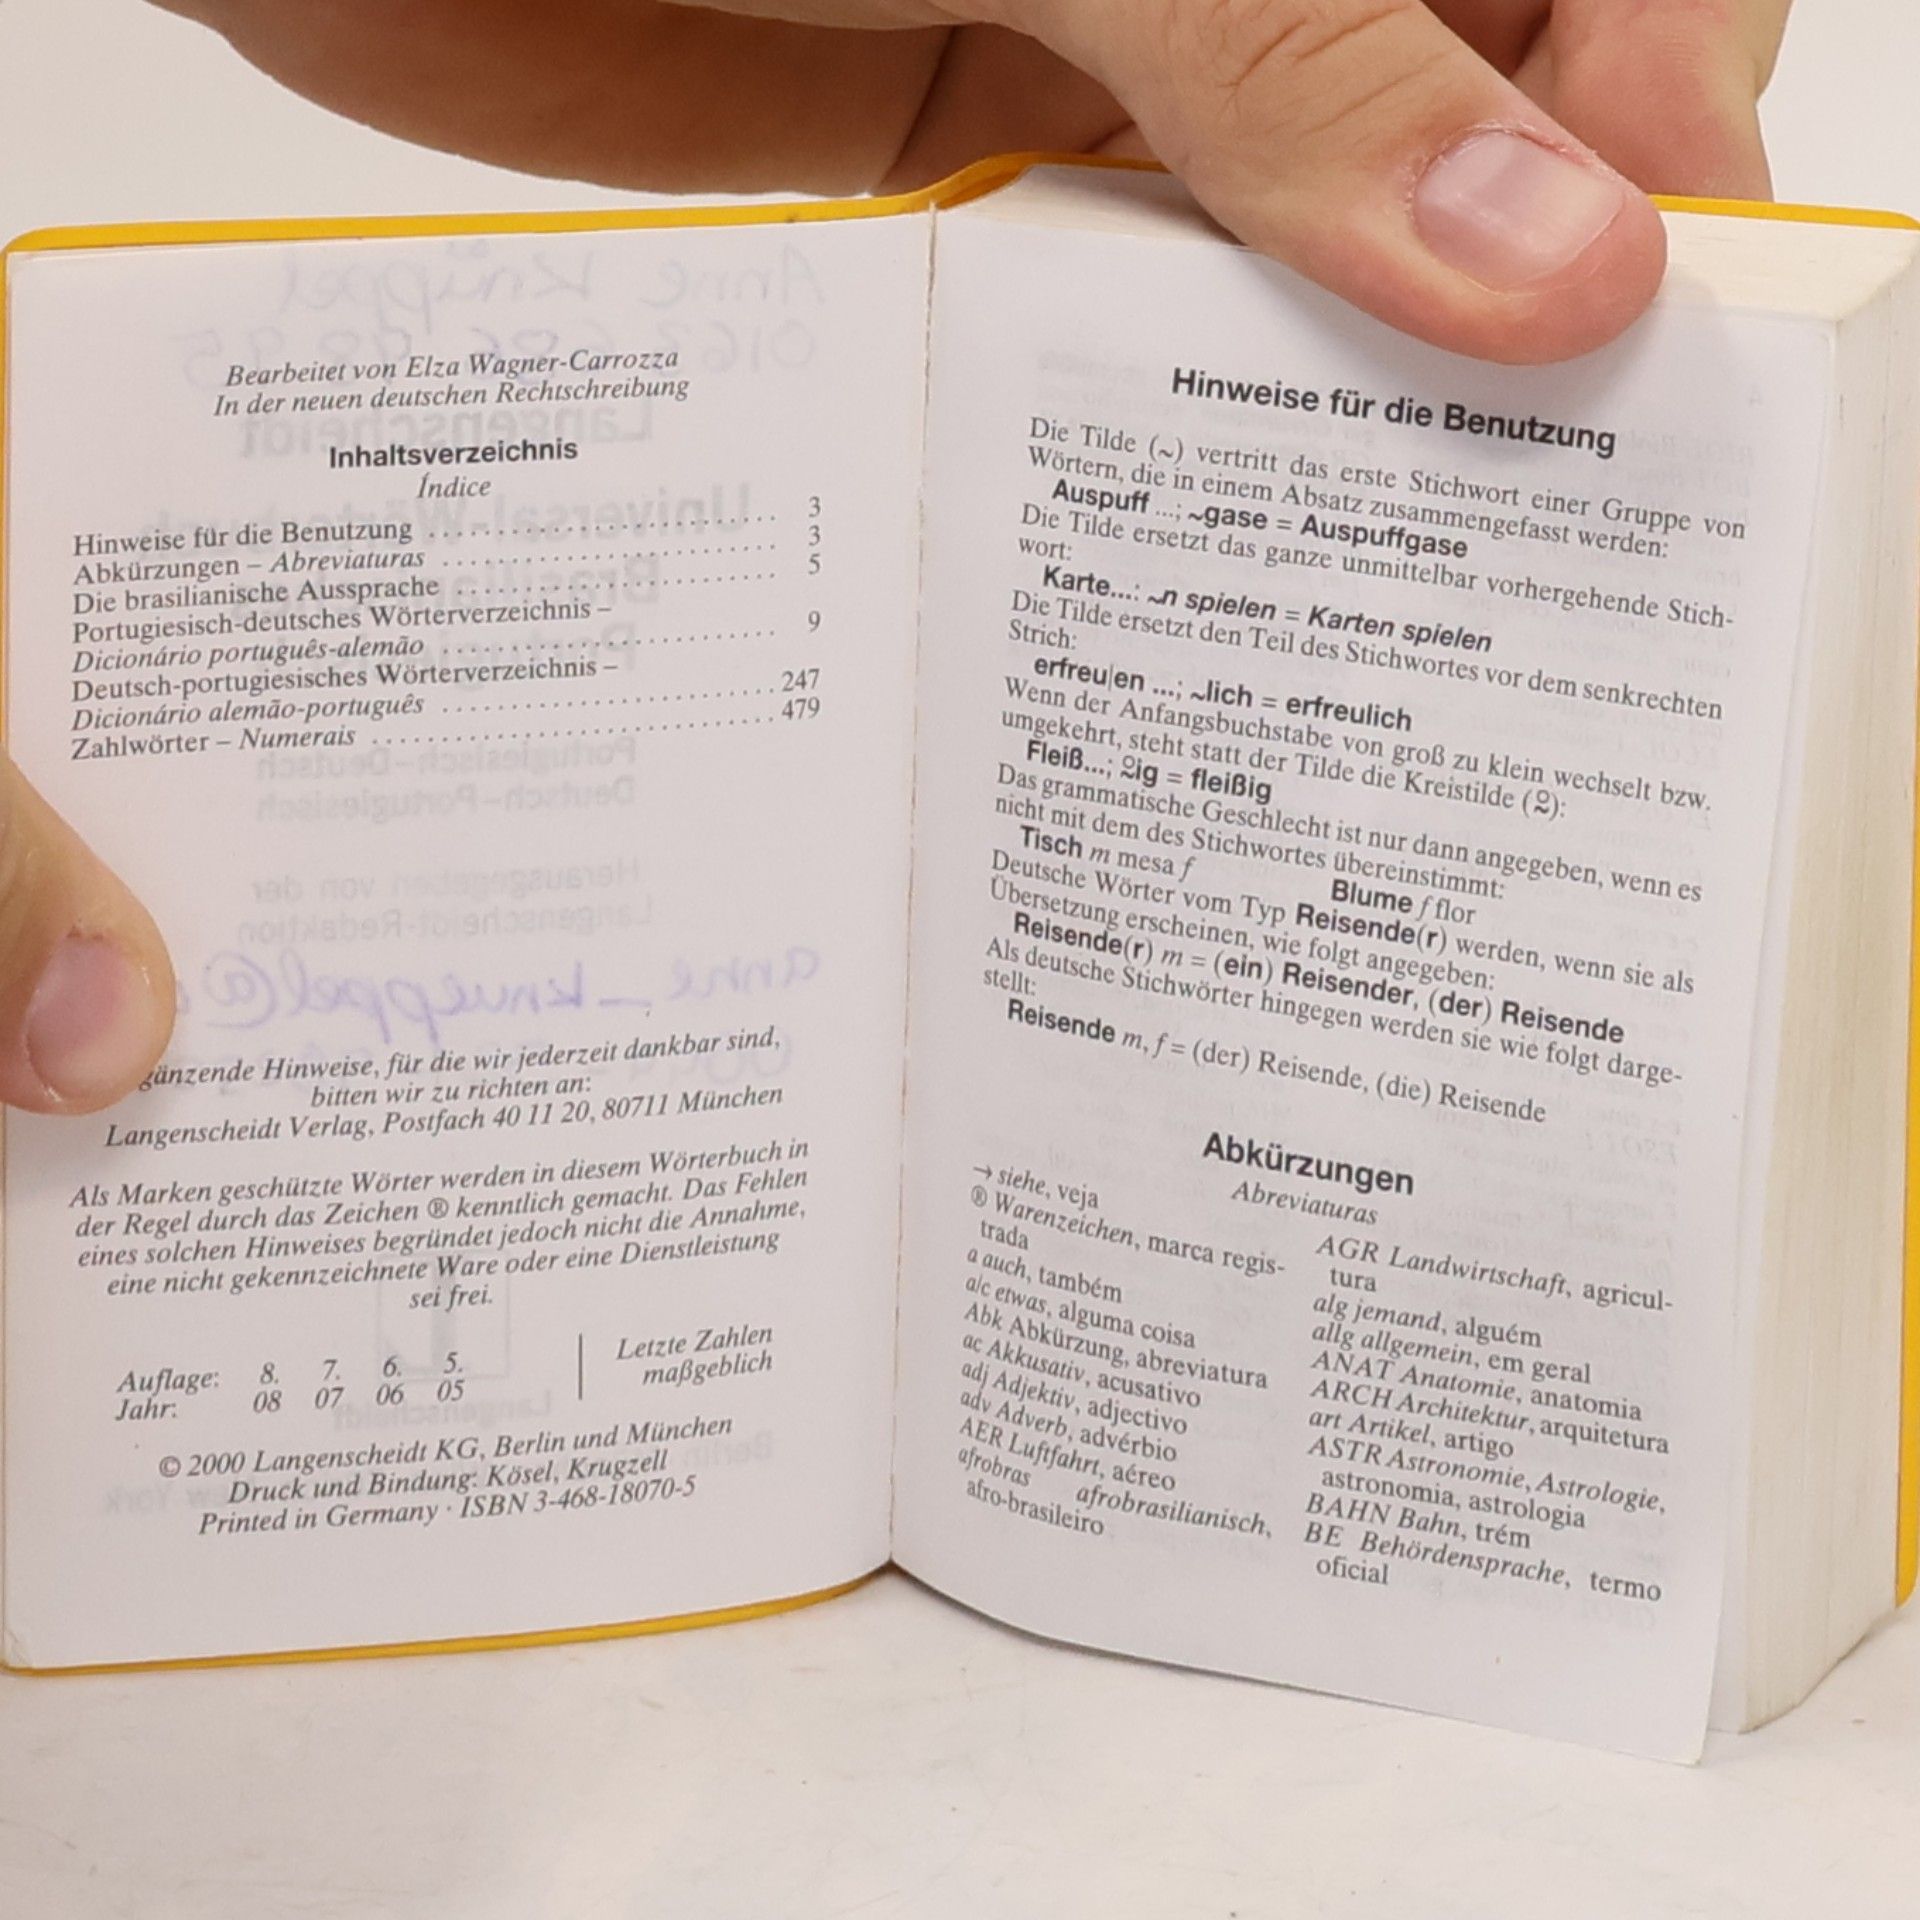 Bearbeitet von Elza Wagner-Carrozza
In der neuen deutschen Rechtschreibung
Inhaltsverzeichnis
Índice
Hinweise für die Benutzung .................................. 3
Abkürzungen – Abreviaturas .................................. 3
Die brasilianische Aussprache ................................ 5
Portugiesisch-deutsches Wörterverzeichnis –
Dicionário português-alemão .................................. 9
Deutsch-portugiesisches Wörterverzeichnis –
Dicionário alemão-português .................................. 247
Zahlwörter – Numerais ........................................ 479
gänzende Hinweise, für die wir jederzeit dankbar sind,
bitten wir zu richten an:
Langenscheidt Verlag, Postfach 40 11 20, 80711 München
Als Marken geschützte Wörter werden in diesem Wörterbuch in
der Regel durch das Zeichen ® kenntlich gemacht. Das Fehlen
eines solchen Hinweises begründet jedoch nicht die Annahme,
eine nicht gekennzeichnete Ware oder eine Dienstleistung
sei frei.
Auflage: 8. 7. 6. 5. | Letzte Zahlen
Jahr: 08 07 06 05 | maßgeblich
© 2000 Langenscheidt KG, Berlin und München
Druck und Bindung: Kösel, Krugzell
Printed in Germany · ISBN 3-468-18070-5
Hinweise für die Benutzung
Die Tilde (~) vertritt das erste Stichwort einer Gruppe von
Wörtern, die in einem Absatz zusammengefasst werden:
Auspuff ...; ~gase = Auspuffgase
Die Tilde ersetzt das ganze unmittelbar vorhergehende Stich-
wort:
Karte...: ~n spielen = Karten spielen
Die Tilde ersetzt den Teil des Stichwortes vor dem senkrechten
Strich:
erfreu|en ...; ~lich = erfreulich
Wenn der Anfangsbuchstabe von groß zu klein wechselt bzw.
umgekehrt, steht statt der Tilde die Kreistilde (⍨):
Fleiß...; ⍨ig = fleißig
Das grammatische Geschlecht ist nur dann angegeben, wenn es
nicht mit dem des Stichwortes übereinstimmt:
Tisch m mesa f Blume f flor
Deutsche Wörter vom Typ Reisende(r) werden, wenn sie als
Übersetzung erscheinen, wie folgt angegeben:
Reisende(r) m = (ein) Reisender, (der) Reisende
Als deutsche Stichwörter hingegen werden sie wie folgt darge-
stellt:
Reisende m, f = (der) Reisende, (die) Reisende
Abkürzungen
Abreviaturas
→ siehe, veja
® Warenzeichen, marca regis-
trada
a auch, também
a/c etwas, alguma coisa
Abk Abkürzung, abreviatura
ac Akkusativ, acusativo
adj Adjektiv, adjectivo
adv Adverb, advérbio
AER Luftfahrt, aéreo
afrobras afrobrasilianisch,
afro-brasileiro
AGR Landwirtschaft, agricul-
tura
alg jemand, alguém
allg allgemein, em geral
ANAT Anatomie, anatomia
ARCH Architektur, arquitetura
art Artikel, artigo
ASTR Astronomie, Astrologie,
astronomia, astrologia
BAHN Bahn, trém
BE Behördensprache, termo
oficial